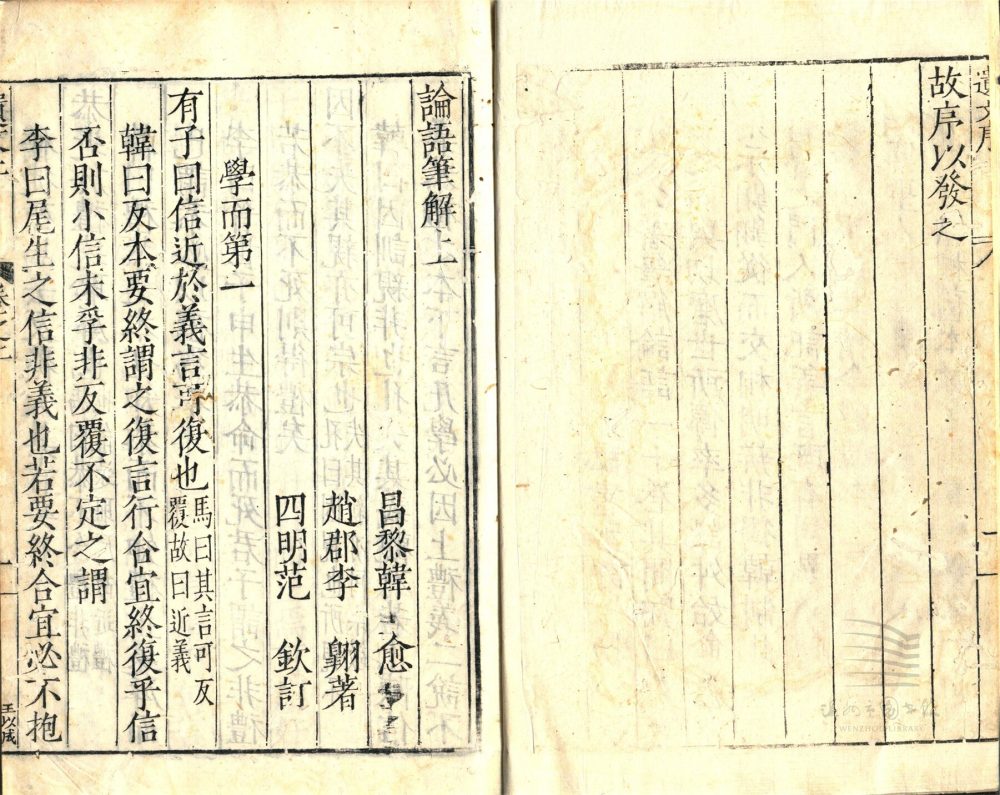 故序以發之
論語筆解上
昌黎韓 愈
趙郡李 翺著
四明范 欽訂
學而第一
有子曰信近於義言可復也馬曰其言可反
覆故曰近義
韓曰反本要終謂之復言行合宜終復乎信
否則小信未孚非反覆不定之謂
李曰尾生之信非義也若要終合宜必不抱
王以成
WENZHOU LIBRARY